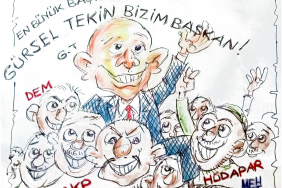 EN BÜYÜK BAŞ
GÜRSEL TEKİN BİZİM BAŞKAN!
G.T
DEM
HÜDAPAR
KP
MEH